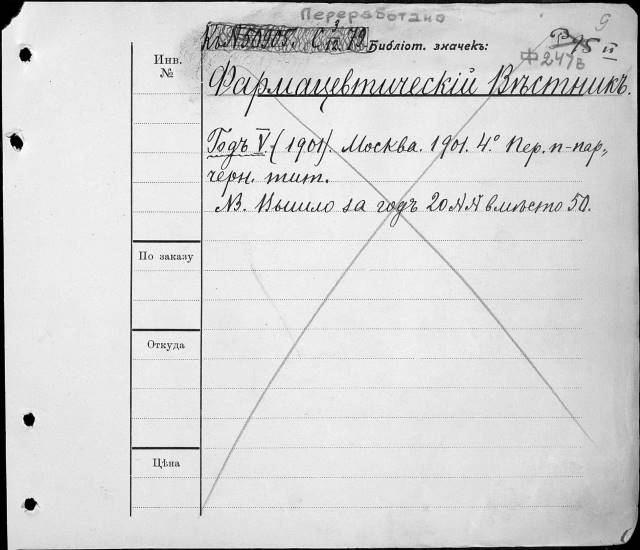 Переработано
9
Библіот. значекъ:
Ф 244/в
Инв.
№
Фармацевтическій Вѣстникъ.
Годъ V. (1901). Москва. 1901. 4º Пер. п-пар.,
черн. тит.
NB. Вышло за годъ 20 №№ вмѣсто 50.
По заказу
Откуда
Цѣна